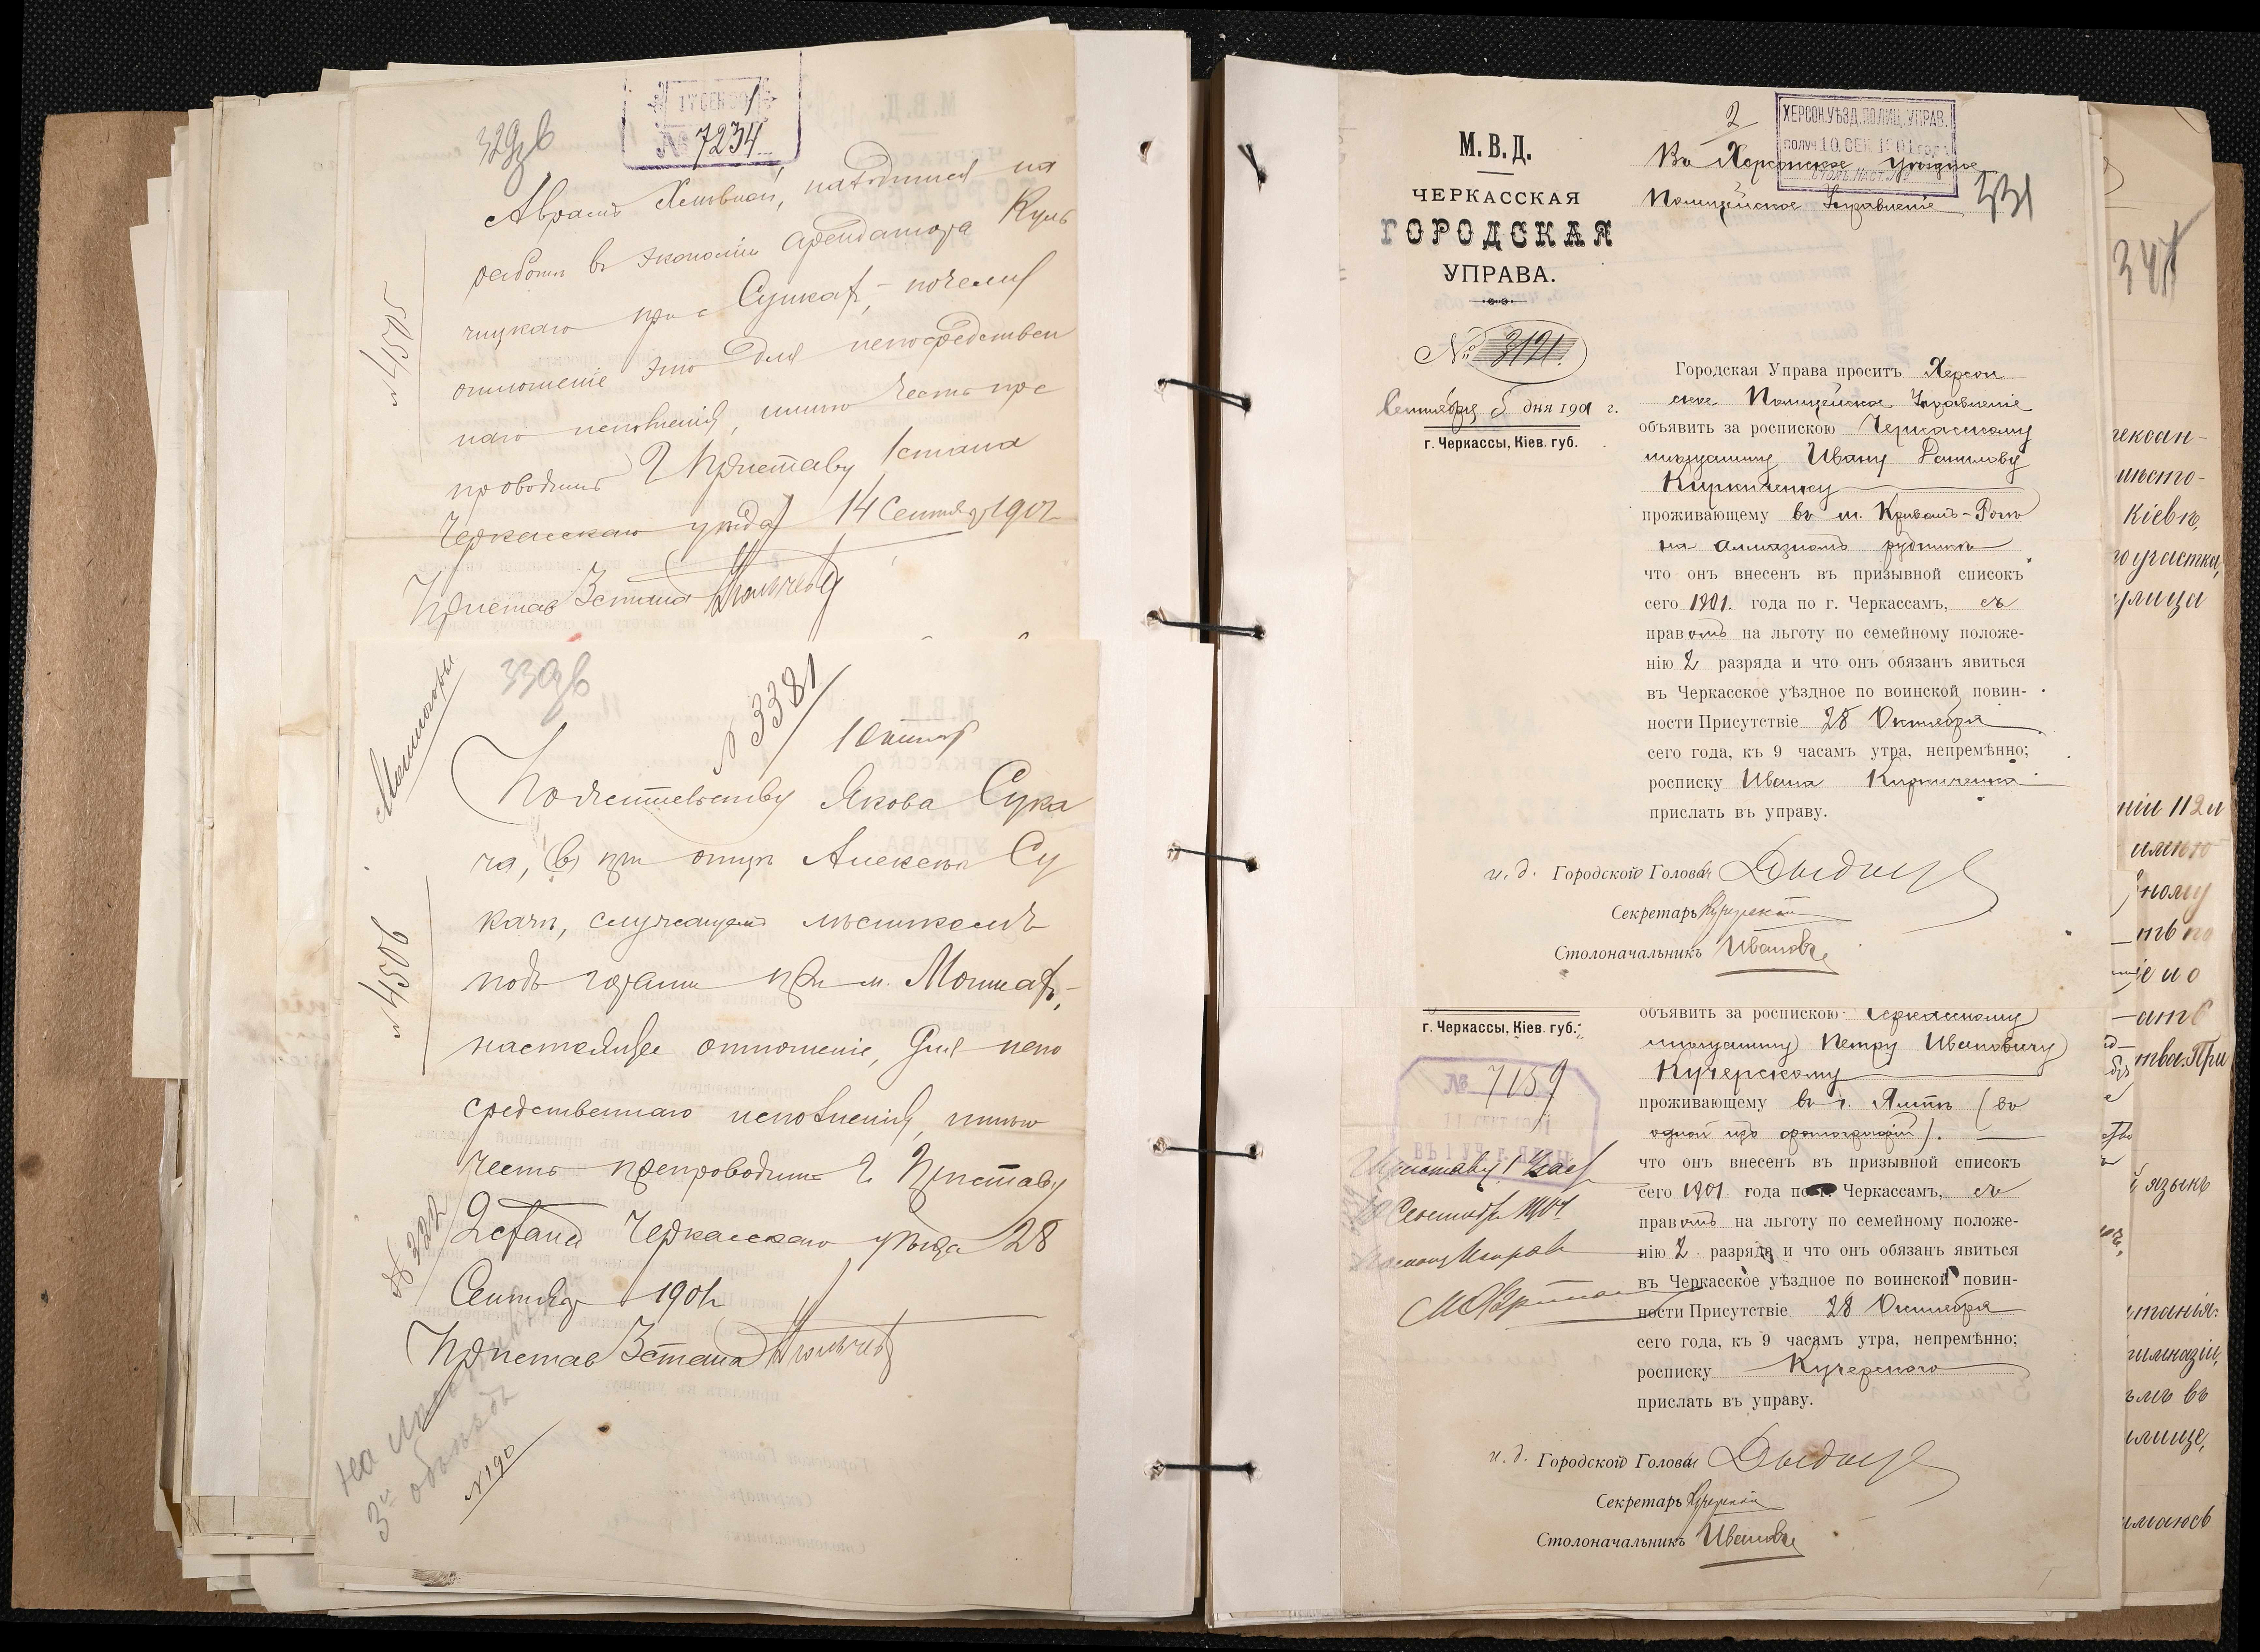 329об
17 СЕН 1901
№ 7234
Аврамъ находится на
работѣ въ экономіи арендатора Куль
чицкаго при с Сушкахъ, – почему
отношеніе это для непосредствен
наго исполненія, имѣю честь пре
проводить Г Приставу 1 стана
Черкасскаго уѣзда 14 Сентября 1901 г
№ 4505
Приставъ 3 стана
330об
№ 3381
Мошногорье
По жительству Якова Сука
ча, при отцѣ Алексѣѣ Су
качѣ, служащемъ лѣсникомъ
подъ горами при м. Мошнахъ,–
настоящее отношеніе, для непо
средственнаго исполненія, имѣю
честь препроводить Г. Приставу
2 стана Черкасскаго уѣзда 28
Сентября 1901 г
№ 4506
№ 322
Приставъ 3 стана
№ 190
М. В. Д.
ЧЕРКАССКАЯ
ГОРОДСКАЯ
УПРАВА.
№ 3121.
Сентября 5 дня 1901 г.
г. Черкассы, Кіев. губ.
2
ХЕРСОН.УѢЗД.ПОЛИЦ.УПРАВ.
ПОЛУЧ 10 СЕН 1901 года
Въ Херсонское Уѣздное
Полицейское Управленіе
331
Городская Управа проситъ Херсон
ское Полицейское Управленіе
объявить за роспискою Черкасскому
мѣщанину Ивану Данилову
Киркиченку
проживающему въ м. Кривомъ-Рогѣ
на алмазномъ рудникѣ
что онъ внесенъ въ призывной списокъ
сего 1901. года по г. Черкассамъ, съ
правомъ на льготу по семейному положе-
нію 2 разряда и что онъ обязанъ явиться
въ Черкасское уѣздное по воинской повин-
ности Присутствіе 28 Октября
сего года, къ 9 часамъ утра, непремѣнно;
росписку Ивана Киркиченка
прислать въ управу.
и. д. Городского Головы
Секретарь
Столоначальникъ Ивановъ
г. Черкассы, Кіев. губ.
№ 7159
11 СЕНТ 1901
ВЪ 1 УЧ. г. ЯЛТЫ
Приставу 1 части
10 Сентября 1901
объявить за роспискою Черкасскому
мѣщанину Петру Ивановичу
Кучерскому
проживающему въ г. Ялтѣ (въ
одной изъ фотографій).
что онъ внесенъ въ призывной списокъ
сего 1901 года по г. Черкассамъ, съ
правомъ на льготу по семейному положе-
нію 2 разряда и что онъ обязанъ явиться
въ Черкасское уѣздное по воинской повин-
ности Присутствіе 28 Октября
сего года, къ 9 часамъ утра, непремѣнно;
росписку Кучерского
прислать въ управу.
и. д. Городского Головы
Секретарь
Столоначальникъ Ивановъ
347
Кіевѣ,
го участка,
ному
тва. При
языкѣ
гимназіи,